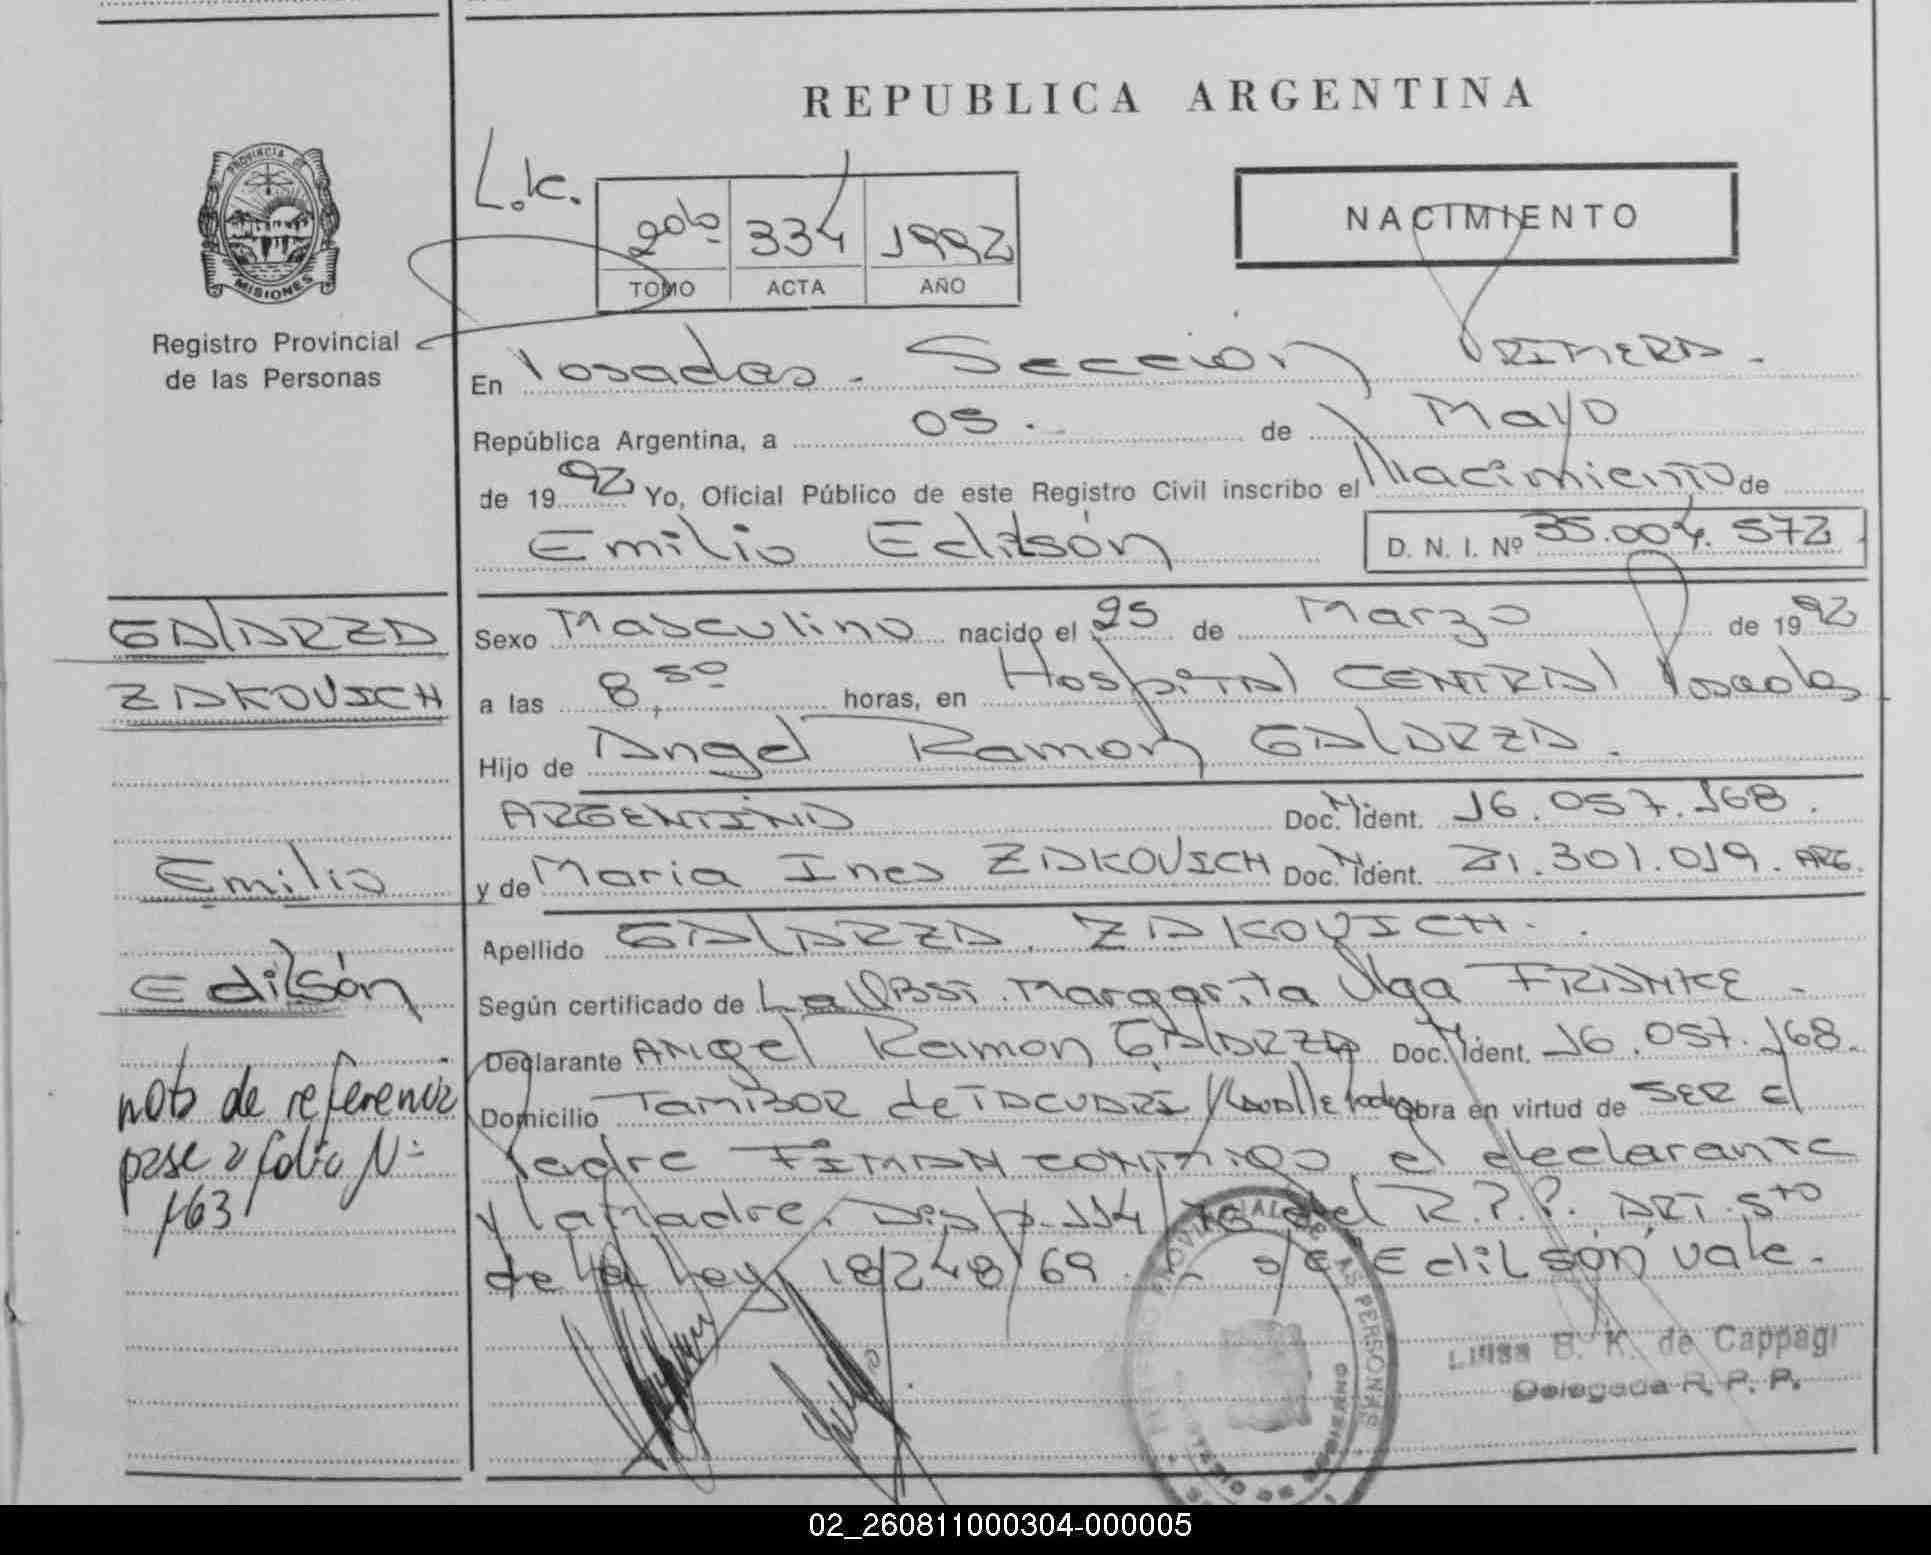 REPUBLICA ARGENTINA
PROVINCIA DE
MISIONES
Registro Provincial
de las Personas
L.K.
2do 334 1992
TOMO ACTA AÑO
NACIMIENTO
En Posadas - Sección PRIMERA -
República Argentina, a 05. de Mayo
de 1992 Yo, Oficial Público de este Registro Civil inscribo el Nacimiento de
Emilio Edilsón D. N. I. Nº 35.004.572
GALARZA
ZAKOVICH
Emilio
Edilsón
nota de referencia
pase a folio Nº
163
Sexo Masculino nacido el 25 de Marzo de 1992
a las 8,50 horas, en Hospital CENTRAL Posadas
Hijo de Angel Ramon GALARZA.
ARGENTINO Doc. Ident. 16.057.168.
y de Maria Ines ZAKOVICH Doc. Ident. 21.301.019. ARG.
Apellido GALARZA ZAKOVICH.
Según certificado de La Obst. Margarita Olga FRANKE -
Declarante ANgel Ramon GALARZA Doc. Ident. 16.057.168.
Domicilio TAMBOR de TACUARI / Lavalle Obra en virtud de SER el
Padre FIRMAN CONMIGO el declarante
y la Madre. Disp. 114/ del R.P.P. ART. 5to
de la Ley 18/248/69. "Edilsón" vale.
REGISTRO PROVINCIAL DE LAS PERSONAS
MINISTERIO DE GOBIERNO
Luisa B. K. de Cappagi
Delegada R. P. P.
02_260811000304-000005